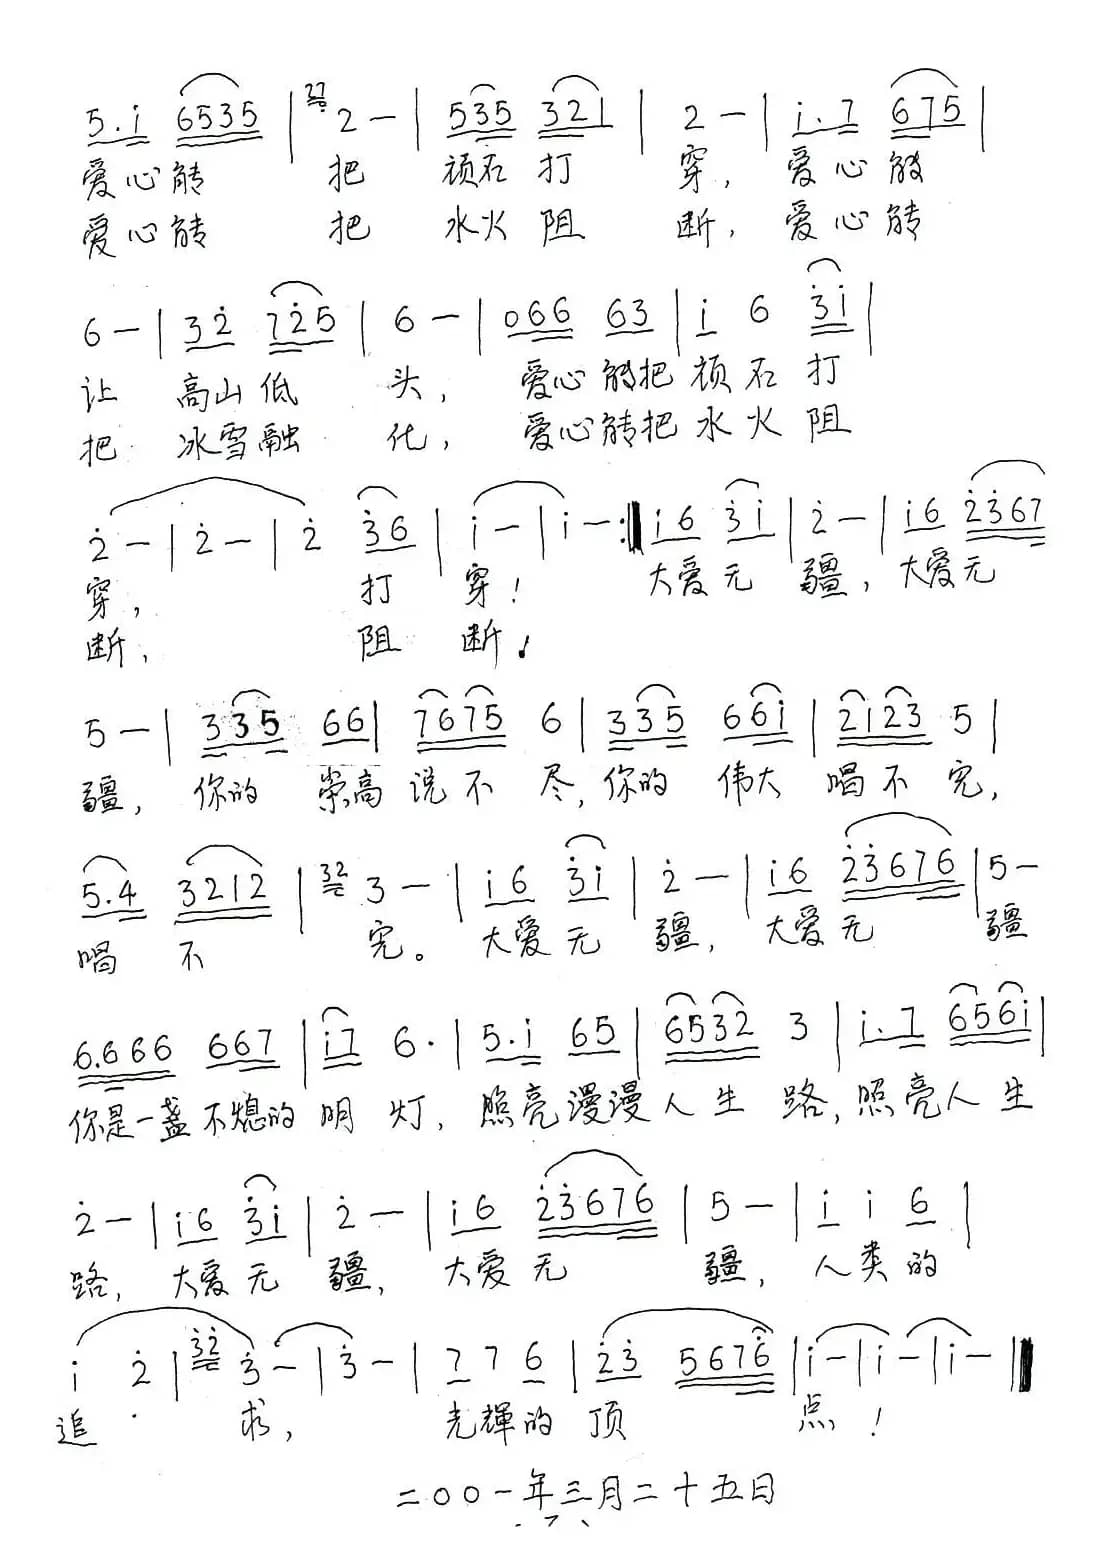 5.i 6535 | 32 2 — | 535 321 | 2 — | i.7 675 |
爱心能 把 顽石 打 穿，爱心能
爱心能 把 水火 阻 断，爱心能
6 — | 32̇ 72̇5 | 6 — | 066 63 | i 6 3̇i |
让 高山低 头，爱心能把顽石打
把 冰雪融 化，爱心能把水火阻
2̇ — | 2̇ — | 2̇ 3̇6 | i — | i — :‖ i6 3̇i | 2̇ — | i6 2̇3̇67
穿，打 穿！大爱无 疆，大爱无
断，阻 断！
5 — | 335 66 | 7675 6 | 335 66i | 2̇12̇3̇ 5 |
疆，你的 崇高 说不 尽，你的 伟大 唱不 完，
5.4 3212 | 32 3 — | i6 3̇i | 2̇ — | i6 2̇3̇676 | 5 —
唱 不 完。大爱无 疆，大爱无 疆
6.666 667 | i7 6. | 5.i 65 | 6532 3 | i.7 656i |
你是一盏不熄的 明 灯，照亮漫漫人生 路，照亮人生
2̇ — | i6 3̇i | 2̇ — | i6 2̇3̇676 | 5 — | i i 6 |
路，大爱无 疆，大爱无 疆，人类的
i 2̇ | 3̇2̇ 3̇ — | 3̇ — | 7 7 6 | 2̇3̇ 5676̇ | i — | i — | i — ‖
追 求，光輝的 顶 点！
二00一年三月二十五日